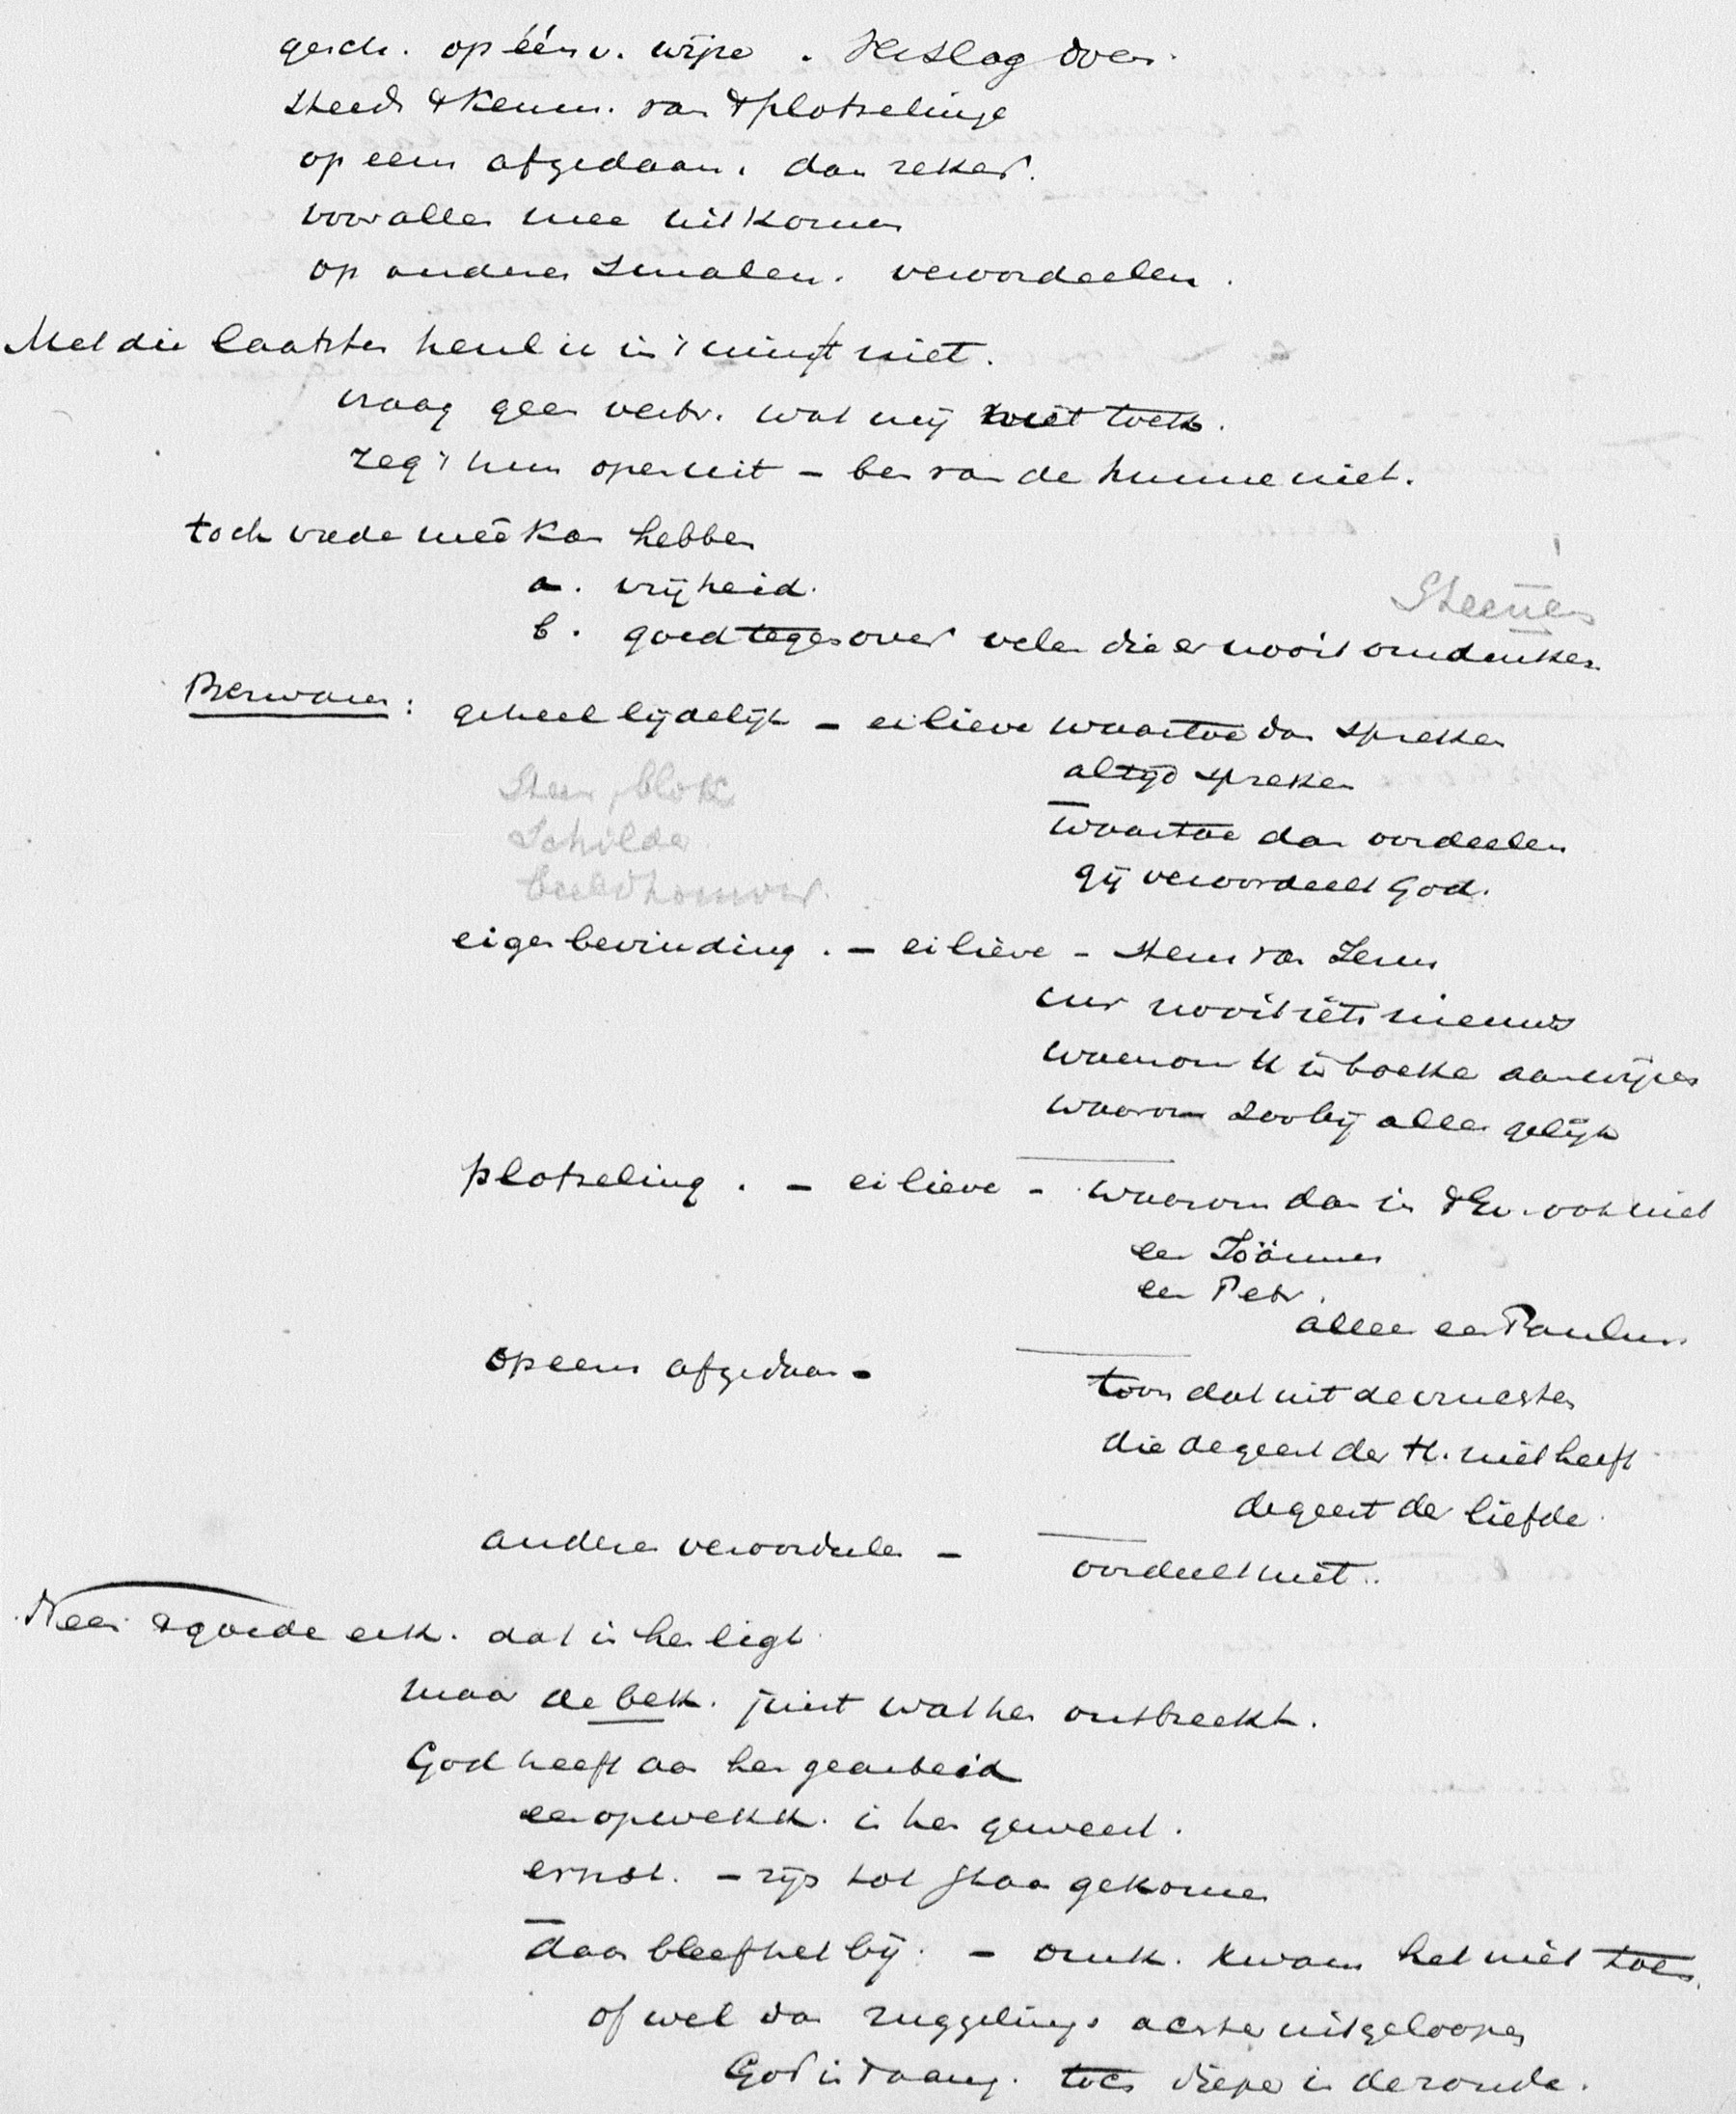 gesch. op één v. wijze. Hetslag doen.
steeds 't Kenm. van 't plotselinge
op eens afgedaan. dan zeker.
voor allen mee uitkomen
op anderen smalen. veroordeelen.
Met die laatsten heul ik in 't minst niet.
vraag geen verbr. wat mij niet toek.
zeg 't hun openuit – ben van de hunne niet.
toch vrede meê kan hebben
a. vrijheid.
Steenen
b. goed tegenover velen die er nooit omdenken
Bezwaren: geheel lijdelijk – eilieve waartoe dan spreken
altijd spreken
Steen, blok
Schilder
beeldhouwer.
waartoe dan oordeelen
gij veroordeelt God.
eigen bevinding. – eilieve – stem van Jezus
nooit iets nieuws
waarom U in boeken aanwijzen
waarom zoo bij allen gelijk
plotseling. – eilieve – waarom dan in 't Ev. ook niet
een Joännes
een Petr.
alleen een Paulus.
opeens afgedaan –
toon dat uit de vruchten
die de geest der H. niet heeft
de geest der liefde.
anderen veroordeelen –
oordeelt niet..
Neen 't goede erk. dat in hen ligt
maar de bek. juist wat hen ontbreekt.
God heeft aan hen gearbeid
een opwekk. in hen geweest.
ernst. – zijn tot staan gekomen
daar bleef het bij. – omk. kwam het niet toen.
of wel dan ruggelings achteruitgeloopen
God is daarg. toen dieper in de zonde.